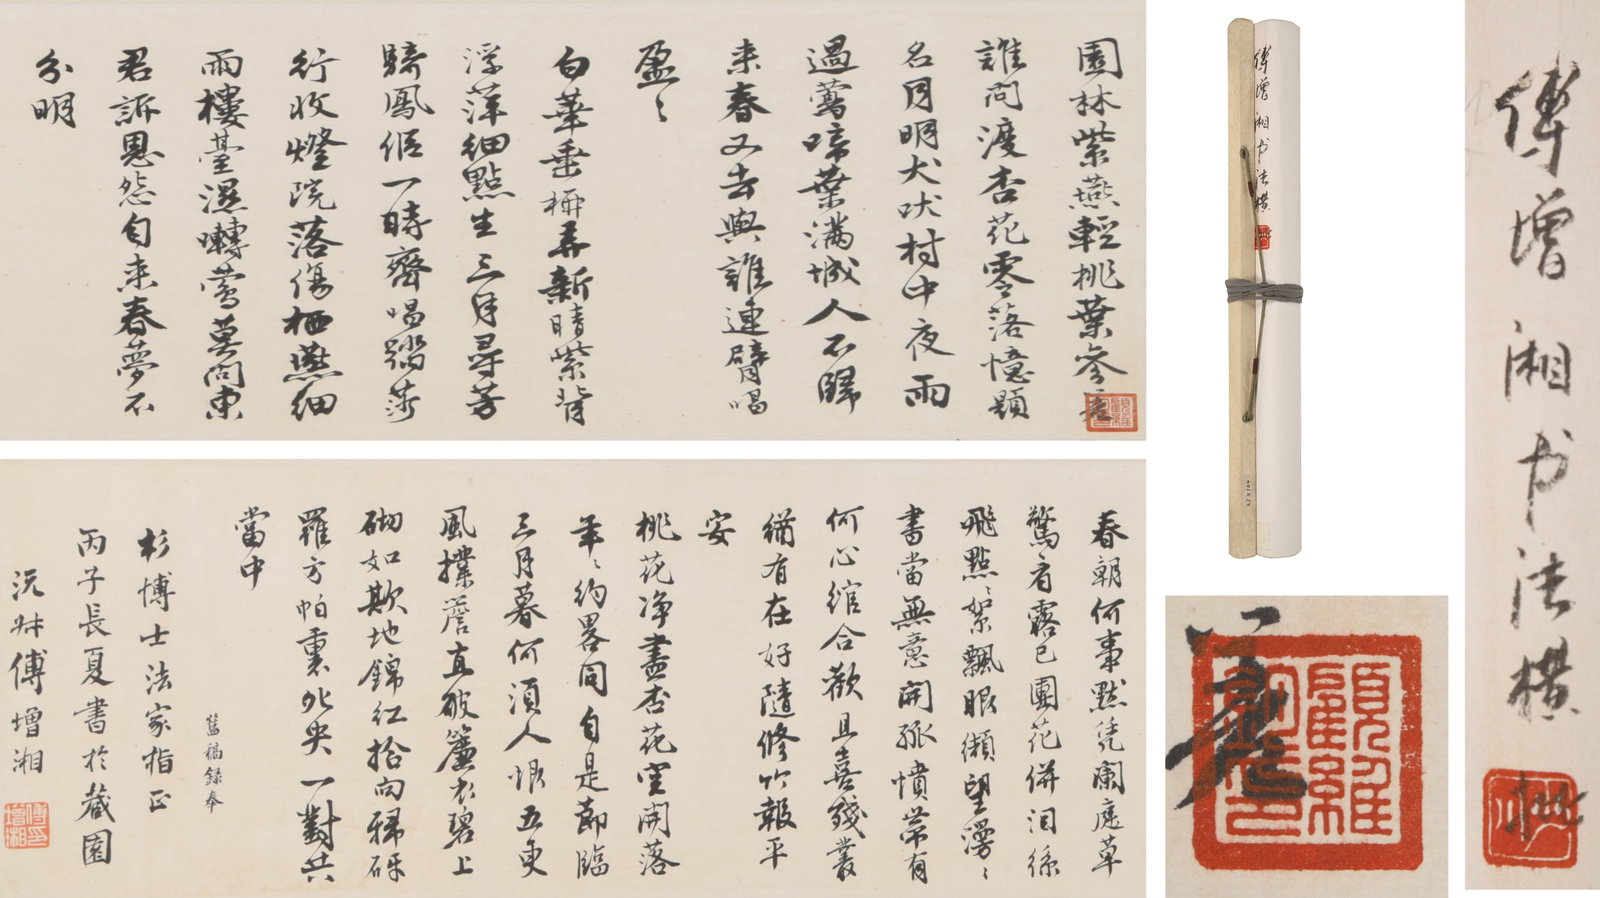 園林紫燕輕桃葉參差
誰問渡杏花零落憶題
名月明犬吠村中夜雨
過鶯啼葉滿城人不歸
来春又去與誰連臂唱
盈〻
白華垂柳弄新晴紫背
浮萍細點生三月尋芳
騎鳳侶一時齊唱踏莎
行收燈院落傷栖燕細
雨樓臺濕囀鶯莫問東
君訴恩怨自来春夢不
分明
春朝何事默凭闌庭草
驚看露已團花併泪絲
飛點〻絮飄眼纈望漫〻
書當無意開孤憤帶有
何心綰合歡且喜殘叢
猶有在好隨修竹報平
安
桃花净盡杏花空開落
年〻約畧同自是節臨
三月暮何須人恨五更
風撲簷直破簾衣碧上
砌如欺地錦紅拾向
羅方帕裏鴛央一對共
當中
舊稿錄奉
杉博士法家指正
丙子長夏書於藏園
沅叔傅增湘
傅增湘
傅增湘书法横
傅增湘书法横